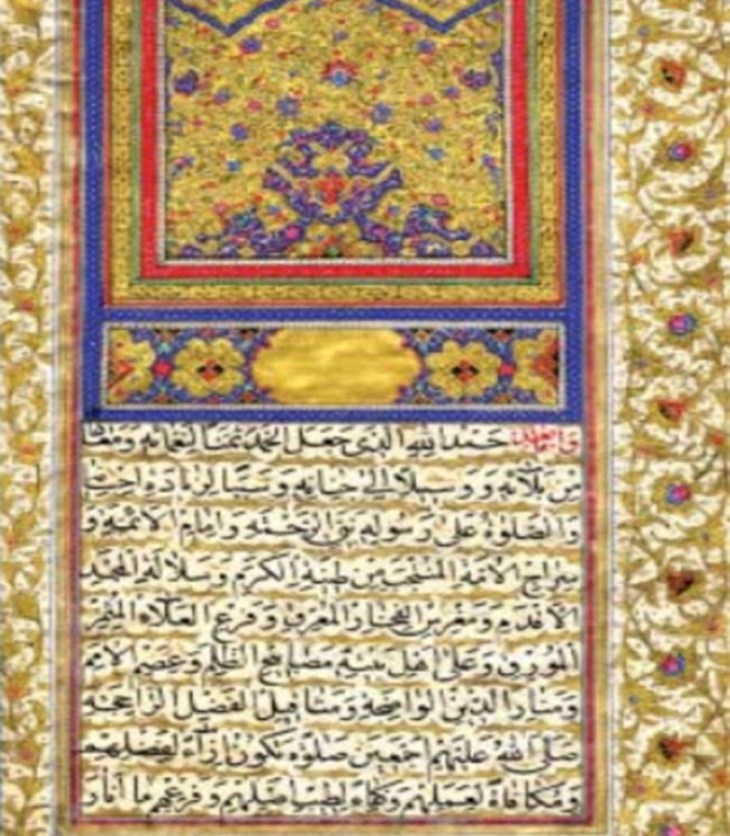 اما بعد حمد الله الذى جعل الحمد ثمنا لنعمائه ومعاذا
من بلائه و وسيلا الى جنانه وسببا لزيادة
والصلوة على رسوله نبى الرحمة وامام الائمة و
سراج الامة المنتجب من طينة الكرم وسلالة المجد
الاقدم ومغرس الفخار المعرق وفرع العلاء المثمر
المورق وعلى اهل بيته مصابيح الظلم وعصم الامم
ومنار الدين الواضحة ومثاقيل الفضل الراجحة
صلى الله عليهم اجمعين صلوة تكون ازاء لفضلهم
ومكافاة لعملهم وكفاء لطيب اصلهم وفرعهم ما انار